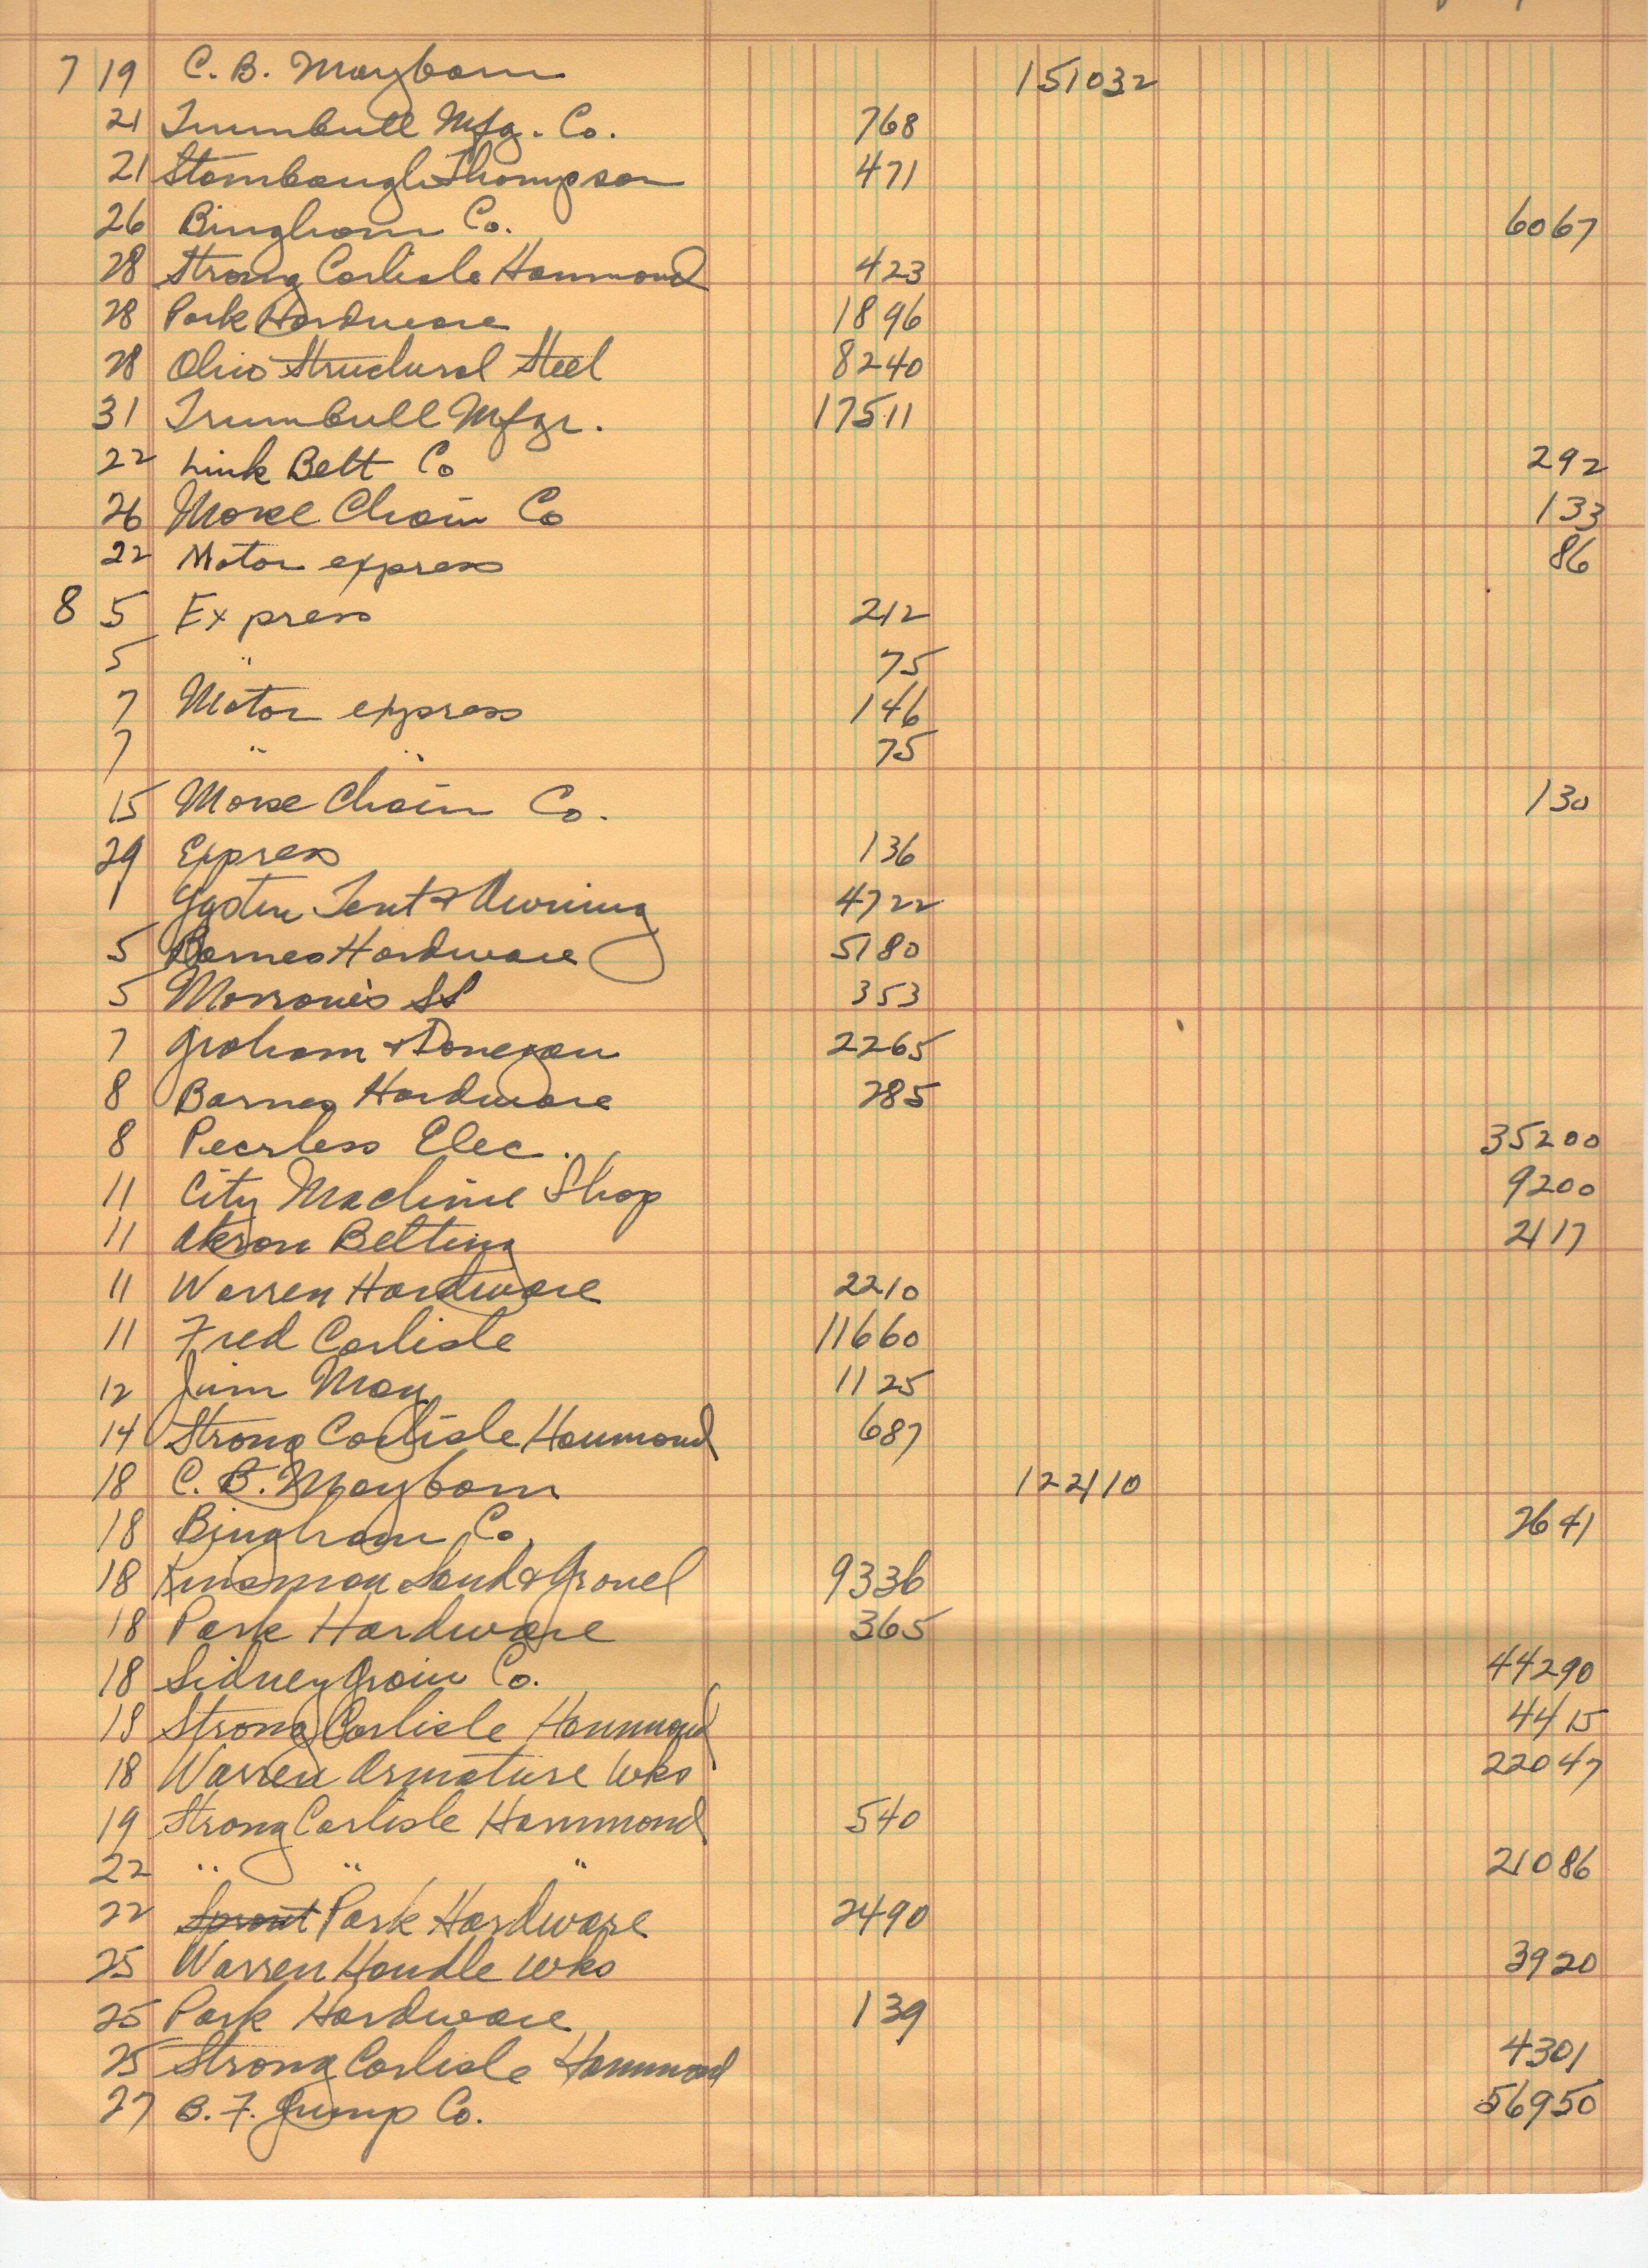 7 19 C. B. Mayborn 151032
21 Trumbull Mfg. Co. 768
21 Stambaugh Thompson 471
26 Bingham Co. 6067
28 Strong Carlisle Hammond 423
28 Park Hardware 1896
28 Ohio Structural Steel 8240
31 Trumbull Mfgr. 17511
22 Link Belt Co 292
26 Morse Chain Co 133
22 Motor express 86
8 5 Express 212
5 " 75
7 Motor express 146
7 " " 75
15 Morse Chain Co. 130
29 Express 136
1 Tent & Awning 4722
5 Barnes Hardware 5180
5 353
7 Graham & Donegan 2265
8 Barnes Hardware 285
8 Peerless Elec. 35200
11 City Machine Shop 9200
11 Akron Belting 2117
11 Warren Hardware 2210
11 Fred Carlisle 11660
12 Jim May 1125
14 Strong Carlisle Hammond 687
18 C. B. Mayborn 122110
18 Bingham Co. 2641
18 Kinsman Sand & Gravel 9336
18 Park Hardware 365
18 Sidney Grain Co. 44290
18 Strong Carlisle Hammond 4415
18 Warren Armature Wks 22047
19 Strong Carlisle Hammond 540
22 " " " 21086
22 Sprout Park Hardware 2490
25 Warren Handle Wks 3920
25 Park Hardware 139
25 Strong Carlisle Hammond 4301
27 B. F. Gump Co. 56950